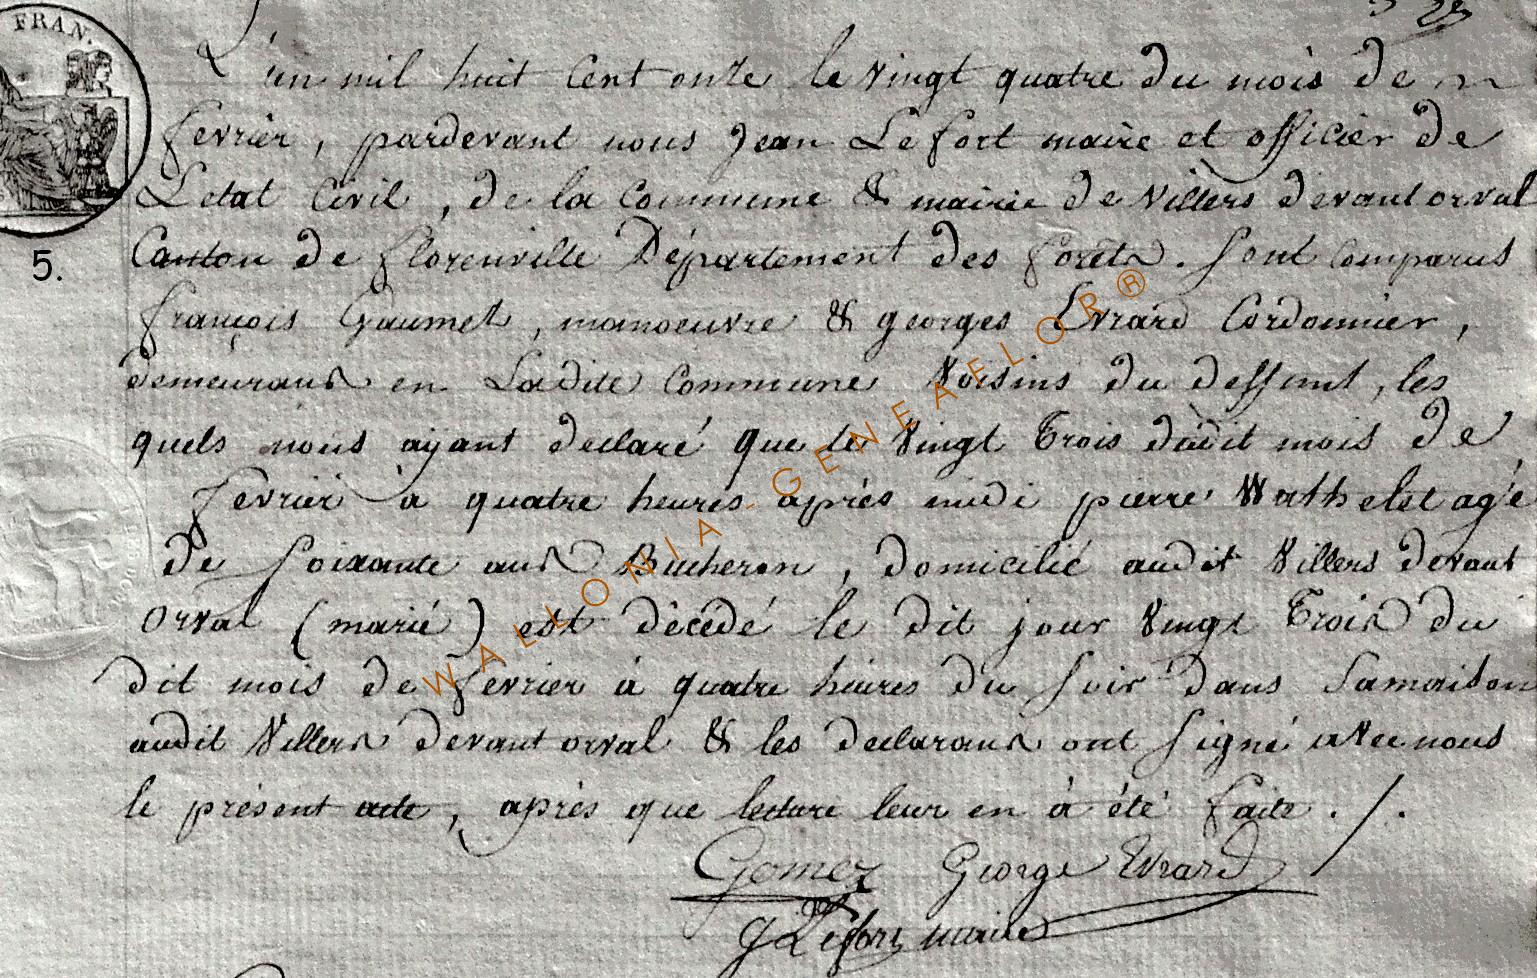 FRAN.
23
L'an mil huit cent onze le vingt quatre du mois de
fevrier, pardevant nous Jean Le fort maire et officier de
L'etat Civil, de la Commune & mairie de Villers devant orval
Canton de florenville Département des forêts. Sont Comparus
françois Gaumez, manoeuvre & georges Evrard Cordonnier,
demeurans en Ladite Commune Voisins du deffunt, les
quels nous aÿant declaré que le Vingt Trois dudit mois de
fevrier à quatre heures après midi pierre Wathelet agé
de Soixante ans Bucheron, domicilié audit Villers devant
5.
Orval (marié) est décédé le dit jour Vingt Trois du
dit mois de fevrier à quatre heures du Soir dans Samaison
audit Villers devant orval & les declarans ont Signé avec nous
le présent acte, après que lecture leur en à été faite ./.
Gomez George Evrard
J Lefort maire
WALLONIA - GENEAFLOR®